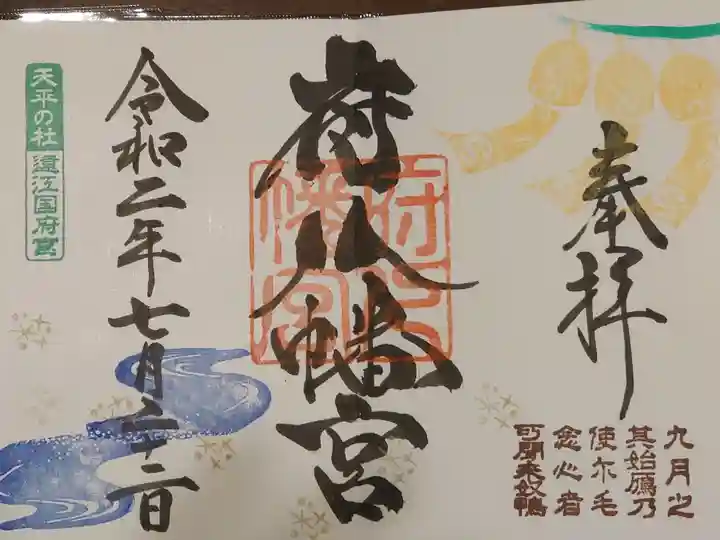 奉拝
九月之
其始鴈乃
使尓毛
念心者
可聞来奴鴨
府八幡宮
府八
幡宮
令和二年七月二十二日
天平の社
遠江国府宮